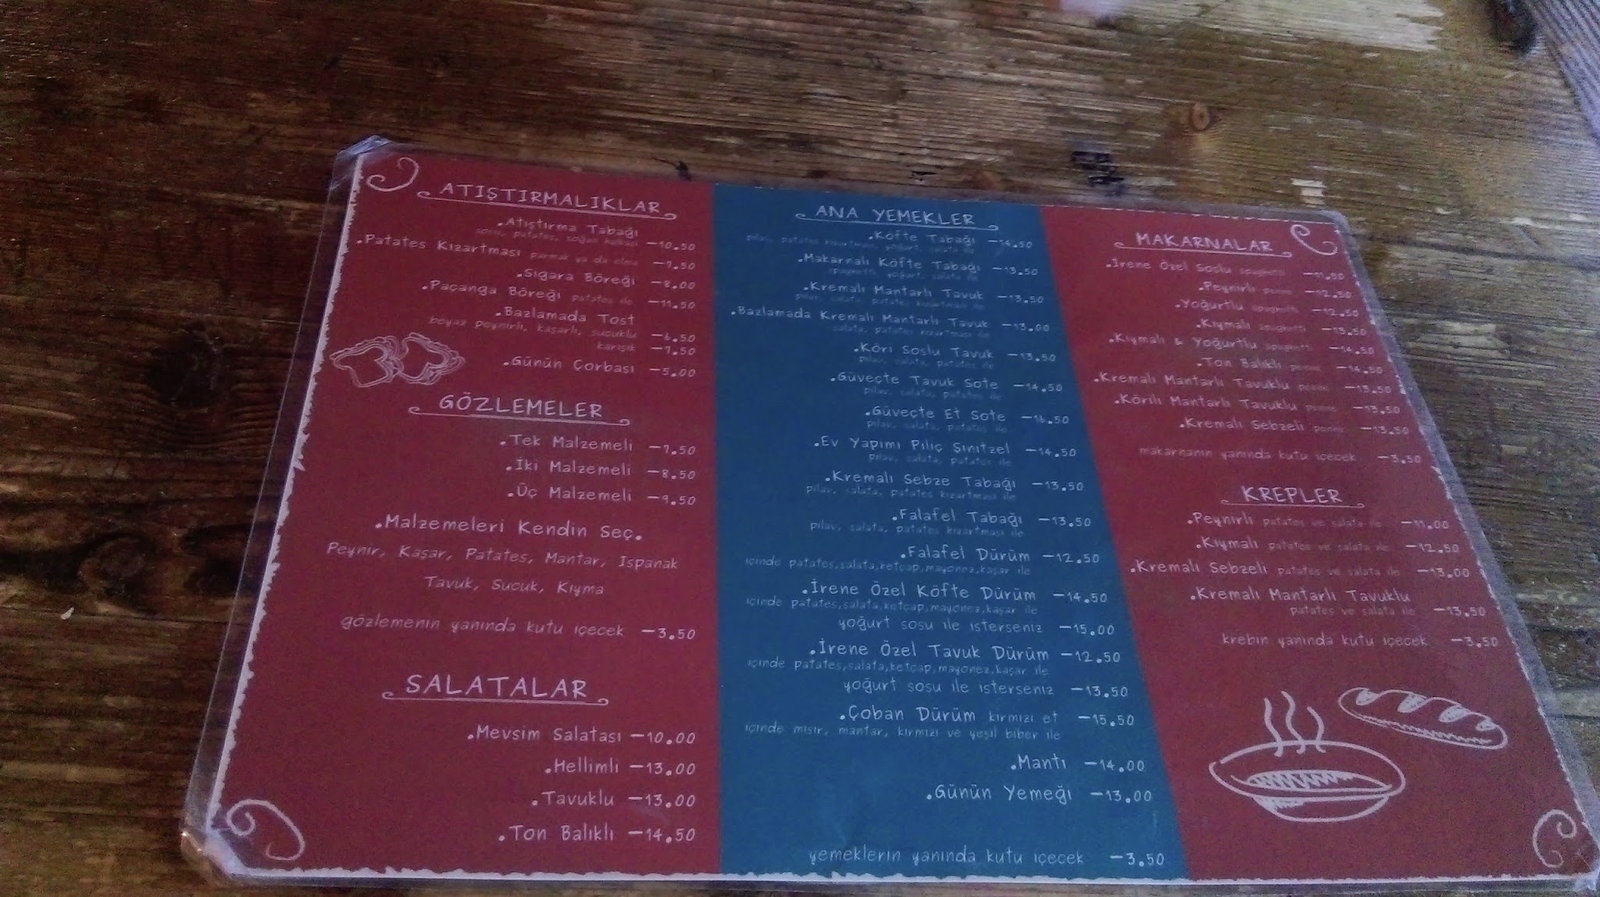 ATIŞTIRMALIKLAR
.Atıştırma Tabağı
sosis, patates, soğan halkası —10.50
.Patates Kızartması parmak ya da elma —7.50
.Sigara Böreği —8.00
.Paçanga Böreği patates ile —11.50
.Bazlamada Tost
beyaz peynirli, kaşarlı, sucuklu —6.50
karışık —7.50
.Günün Çorbası —5.00
GÖZLEMELER
.Tek Malzemeli —7.50
.İki Malzemeli —8.50
.Üç Malzemeli —9.50
.Malzemeleri Kendin Seç.
Peynir, Kaşar, Patates, Mantar, Ispanak
Tavuk, Sucuk, Kıyma
gözlemenin yanında kutu içecek —3.50
SALATALAR
.Mevsim Salatası —10.00
.Hellimli —13.00
.Tavuklu —13.00
.Ton Balıklı —14.50
ANA YEMEKLER
.Köfte Tabağı —14.50
pilav, patates kızartması, yoğurt, salata ile
.Makarnalı Köfte Tabağı —13.50
spaghetti, yoğurt, salata ile
.Kremalı Mantarlı Tavuk —13.50
pilav, salata, patates kızartması ile
.Bazlamada Kremalı Mantarlı Tavuk —13.00
salata, patates kızartması ile
.Köri Soslu Tavuk —13.50
pilav, salata, patates ile
.Güveçte Tavuk Sote —14.50
pilav, salata, patates ile
.Güveçte Et Sote —16.50
pilav, salata, patates ile
.Ev Yapımı Piliç Şinitzel —14.50
pilav, salata, patates ile
.Kremalı Sebze Tabağı —13.50
pilav, salata, patates kızartması ile
.Falafel Tabağı —13.50
pilav, salata, patates kızartması ile
.Falafel Dürüm —12.50
içinde patates,salata,ketçap,mayonez,kaşar ile
.İrene Özel Köfte Dürüm —14.50
içinde patates,salata,ketçap,mayonez,kaşar ile
yoğurt sosu ile isterseniz —15.00
.İrene Özel Tavuk Dürüm —12.50
içinde patates,salata,ketçap,mayonez,kaşar ile
yoğurt sosu ile isterseniz —13.50
.Çoban Dürüm kırmızı et —15.50
içinde mısır, mantar, kırmızı ve yeşil biber ile
.Mantı —14.00
.Günün Yemeği —13.00
yemeklerin yanında kutu içecek —3.50
MAKARNALAR
.İrene Özel Soslu spaghetti —11.50
.Peynirli penne —12.50
.Yoğurtlu spaghetti —12.50
.Kıymalı spaghetti —13.50
.Kıymalı & Yoğurtlu spaghetti —14.50
.Ton Balıklı penne —14.50
.Kremalı Mantarlı Tavuklu penne —13.50
.Körili Mantarlı Tavuklu penne —13.50
.Kremalı Sebzeli penne —13.50
makarnanın yanında kutu içecek —3.50
KREPLER
.Peynirli patates ve salata ile —11.00
.Kıymalı patates ve salata ile —12.50
.Kremalı Sebzeli patates ve salata ile —13.00
.Kremalı Mantarlı Tavuklu
patates ve salata ile —13.50
krebin yanında kutu içecek —3.50